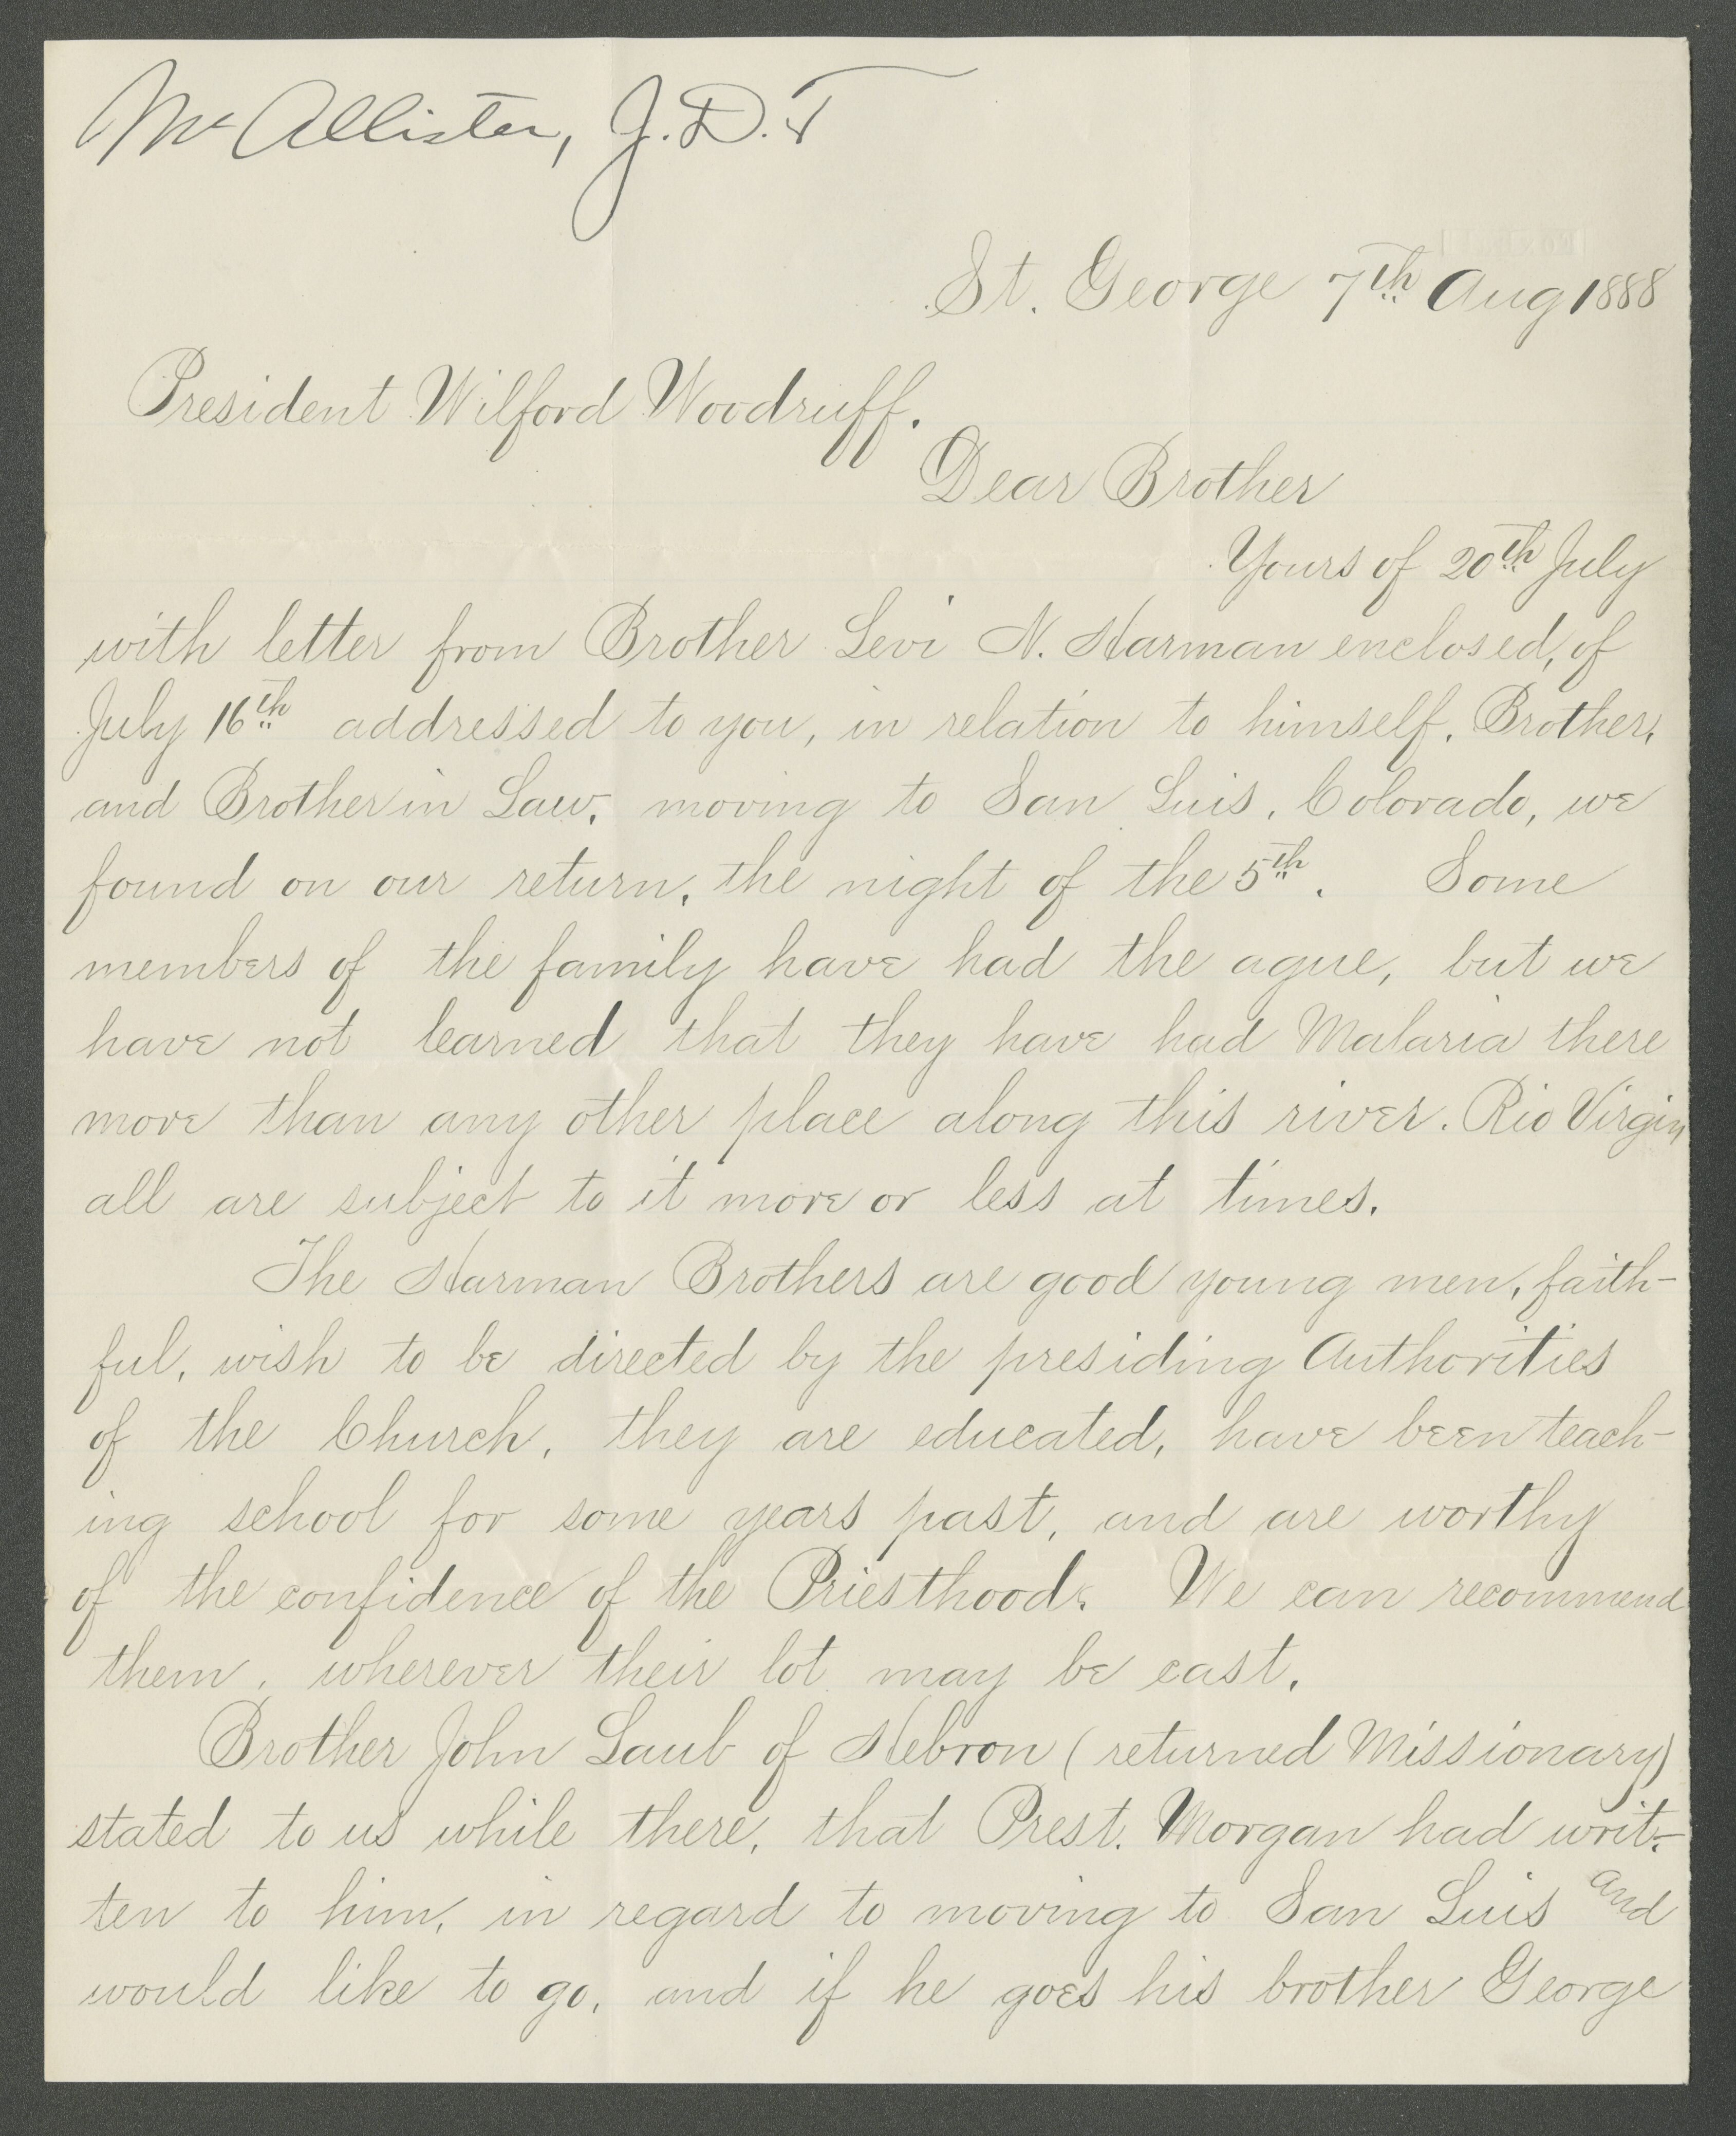 McAllister, J.D.T
St. George 7th Aug 1888
President Wilford Woodruff.
Dear Brother
Yours of 20th July
with letter from Brother Levi N. Harman enclosed, of
July 16th addressed to you, in relation to himself, Brother,
and Brother in Law, moving to San Luis, Colorado, we
found on our return, the night of the 5th. Some
members of the family have had the ague, but we
have not learned that they have had Malaria there
more than any other place along this river. Rio Virgin
all are subject to it more or less at times.
The Harman Brothers are good young men, faith-
ful, wish to be directed by the presiding Authorities
of the Church, they are educated, have been teach-
ing school for some years past, and are worthy
of the confidence of the Priesthood. We can recommend
them, wherever their lot may be cast.
Brother John Laub of Hebron (returned Missionary)
stated to us while there, that Prest. Morgan had writ-
ten to him, in regard to moving to San Luis and
would like to go, and if he goes his brother George